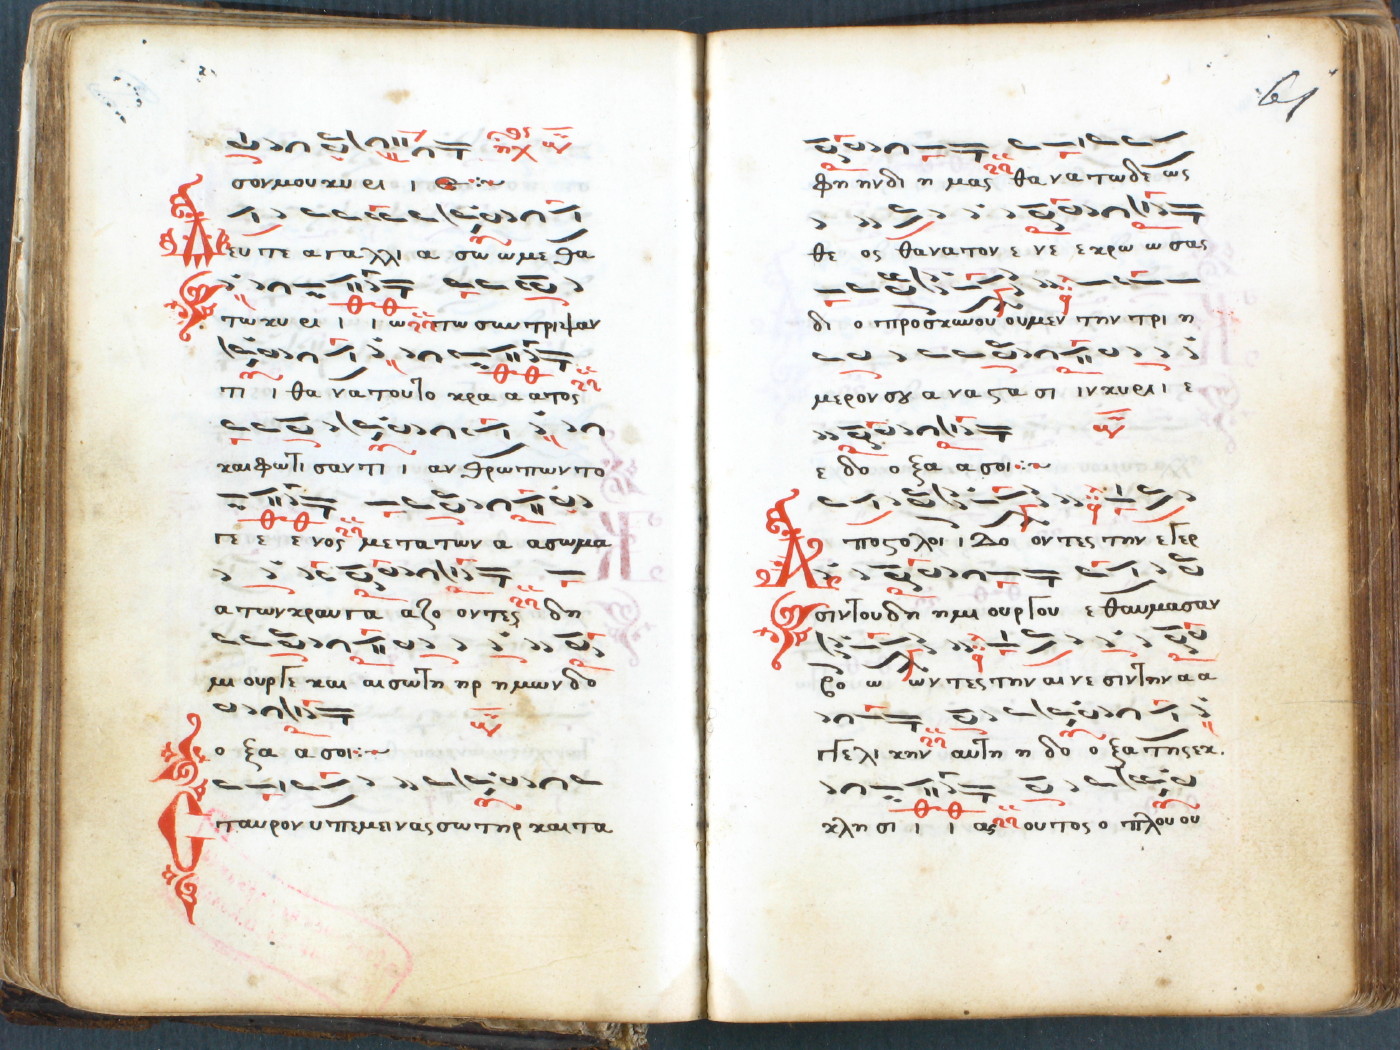 σονμου κυ ρι ι ε
Δευ τε α γα λλι α σω ω με θα
τω κυ ρι ι ι ω τω συν τριψαν
τι ι θα να του το κρα α ατος
και φωτι σαν τι ι αν θρω πων το
γε ε ε νος με τα των α α σω μα
α των κραυ γα α ζο ον τες δη
μι ουρ γε και αι σω τη ηρ η μων δο
ο ξα α σοι
Σταυρον υ πε μει νας σω τηρ και τα
61
φη ην δι η μας θα να τω δε ως
θε ος θα να τον ε νε ε κρω ω σας
δι ο προσκυνου ου μεν την τρι η
μερον σου α να στα σι ιν κυ ρι ι ε
ε δο ο ξα α σοι
Α ποστολοι ι δο ον τες την ε γερ
σιν του δη η μι ουρ γου ε θαυμασαν
βο ω ων τες την αι νε σιν την α α
γγε λι κην αυτη η δο ο ξα της εκ
κλη σι ι ι ας ου τος ο πλου ου